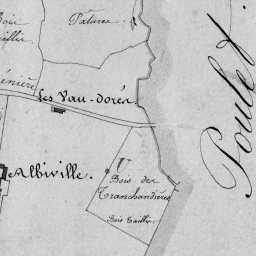 Bois
Taillis
Pature.
les Vau-dorés
Albiville.
Bois des
Tranchandières
Bois Taillis
Poulet